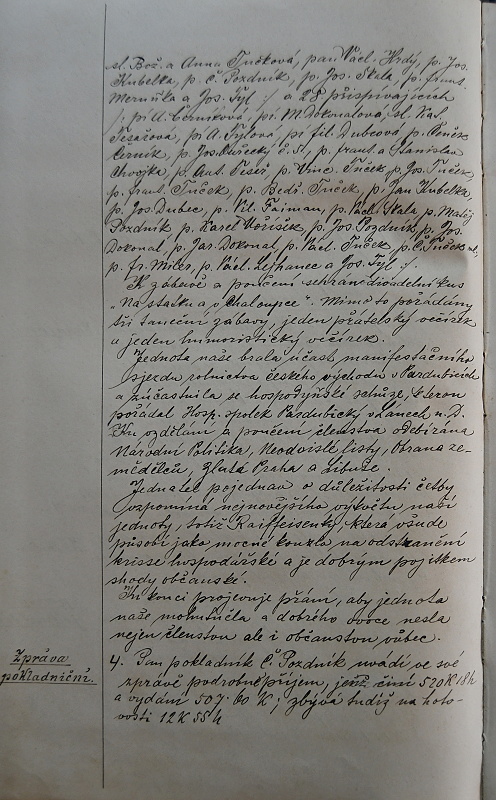 sl. Bož. a Anna Tučková, pan Václ. Hrdý, p. Jos.
Kubelka, p. Č. Pozdník, p. Jos. Skala, p. frant.
Meruňka a Jos. Tyl :/ a 28 přispívajících
/: pí A. Černíková, pí. M. Dokonalová, sl. Kat.
Tesařová, pí A. Tylová, pí fil. Dubcová, p. Čeněk
Černík, p. Jos. č. 1, p. frant. a Stanislav
Chvojka, p. Ant. Tesěř, p. Vinc. Tuček, p. Jos. Tuček
p. frant. Tuček, p. Bedř. Tuček, p. Jan Kubelka,
p. Jos. Dubec, p. Vil. Faiman, p. Václ. Skala, p. Matěj
Pozdník, p. Karel Voříšek, p. Jos. Pozdník, p. Jos.
Dokonal, p. Jar. Dokonal, p. Václ. Tuček, p. Č. Tuček ml.,
p. fr. Miler, p. Václ. Lejhanec a Jos. Tyl :/.
K zábavě a poučení sehráno divadelní kus
„Na statku a v chaloupce". Mimo to pořádány
tři taneční zábavy, jeden přátelský večírek
a jeden humoristický večírek.
Jednota naše brala účast manifestačního
sjezdu rolnictva českého východu v Pardubicích
a zúčastnila se hospodyňské schůze, kterou
pořádal Hosp. spolek Pardubický v Lánech n. D.
Ku vzdělání a poučení členstva odebírána
Národní Politika, Neodvislé listy, Obrana ze-
mědělců, Zlatá Praha a Libuše.
Jednatel pojednav o důležitosti četby
vzpomíná nejnovějšího výkvětu naší
jednoty, totiž Raiffeisenky, která všude
působí jako mocné kouzlo na odstranění
krisse hospodářské a je dobrým pojítkem
shody občanské.
Ku konci projevuje přání, aby jednota
naše mohutněla a dobrého ovoce nesla
nejen členstvu ale i občanstvu vůbec.
Zpráva
pokladniční.
4. Pan pokladník Č. Pozdník uvádí ve své
zprávě podrobně příjem, jenž činí 520 K 18 h
a vydání 507. 60 K; zbývá tudíž na hoto-
vosti 12 K 58 h